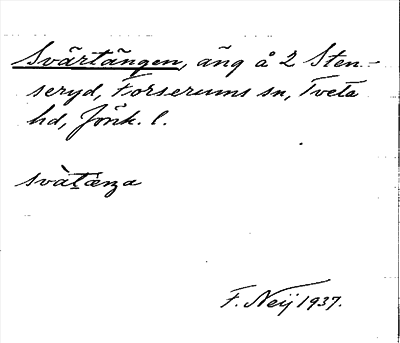 Svärtängen, äng å 2 Sten-
seryd, Forserums sn, Tveta
hd, Jönk. l.
svàtæŋa
F. Neij 1937.